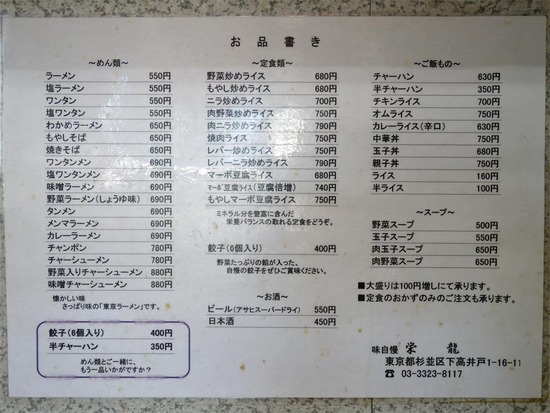 お品書き
～めん類～
ラーメン 550円
塩ラーメン 550円
ワンタン 550円
塩ワンタン 550円
わかめラーメン 650円
もやしそば 650円
焼きそば 650円
ワンタンメン 690円
塩ワンタンメン 690円
味噌ラーメン 690円
野菜ラーメン(しょうゆ味) 690円
タンメン 690円
メンマラーメン 690円
カレーラーメン 690円
チャンポン 780円
チャーシューメン 780円
野菜入りチャーシューメン 880円
味噌チャーシューメン 880円
懐かしい味
さっぱり味の「東京ラーメン」です。
餃子(6個入り) 400円
半チャーハン 350円
めん類とご一緒に、
もう一品いかがですか?
～定食類～
野菜炒めライス 680円
もやし炒めライス 680円
ニラ炒めライス 700円
肉野菜炒めライス 750円
肉ニラ炒めライス 790円
焼肉ライス 750円
レバー炒めライス 750円
レバーニラ炒めライス 790円
マーボ豆腐ライス 680円
マーボ豆腐ライス(豆腐倍増) 740円
もやしマーボ豆腐ライス 750円
ミネラル分を豊富に含んだ
栄養バランスの取れる定食をどうぞ。
餃子(6個入り) 400円
野菜たっぷりの餡が入った、
自慢の餃子をぜひご賞味ください。
～お酒～
ビール(アサヒスーパードライ) 550円
日本酒 450円
～ご飯もの～
チャーハン 630円
半チャーハン 350円
チキンライス 700円
オムライス 750円
カレーライス(辛口) 630円
中華丼 750円
玉子丼 680円
親子丼 750円
ライス 160円
半ライス 100円
～スープ～
野菜スープ 500円
玉子スープ 550円
肉玉子スープ 650円
肉野菜スープ 650円
■大盛りは100円増しにて承ります。
■定食のおかずのみのご注文も承ります。
味自慢 栄龍
東京都杉並区下高井戸1-16-11
☎ 03-3323-8117